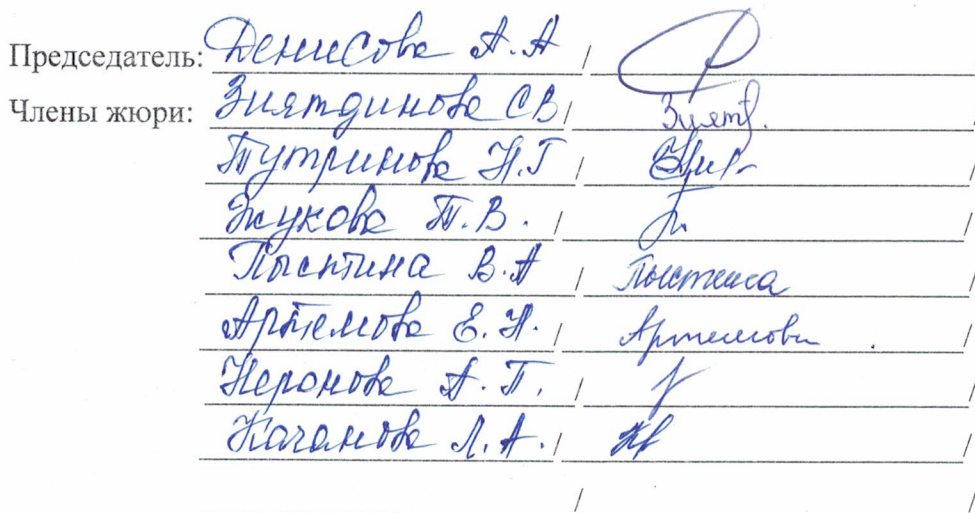 Председатель: Денисова А.А / /
Члены жюри: Зиятдинова СВ / Зият. /
Тутринова Н.Г / /
Жукова Т.В. / /
Пыстина В.А / Пыстина /
Артемова Е.Н. / Артемова /
Неронова А.П. / /
Качанова Л.А. / /
/ /